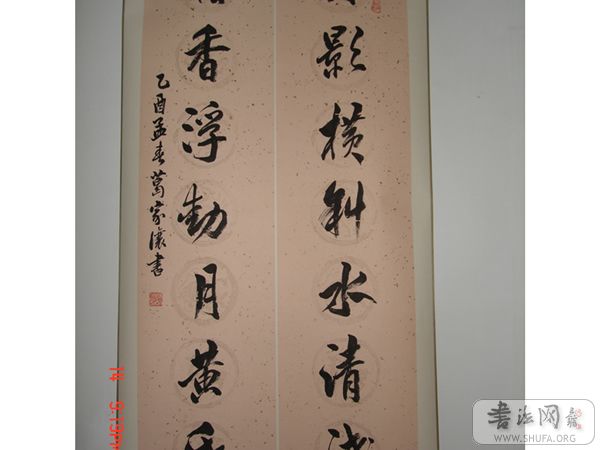 影横斜水清浅
香浮動月黄昏
乙酉孟春葛家瀼書
14 9:19PM
书法网
WWW.SHUFA.ORG